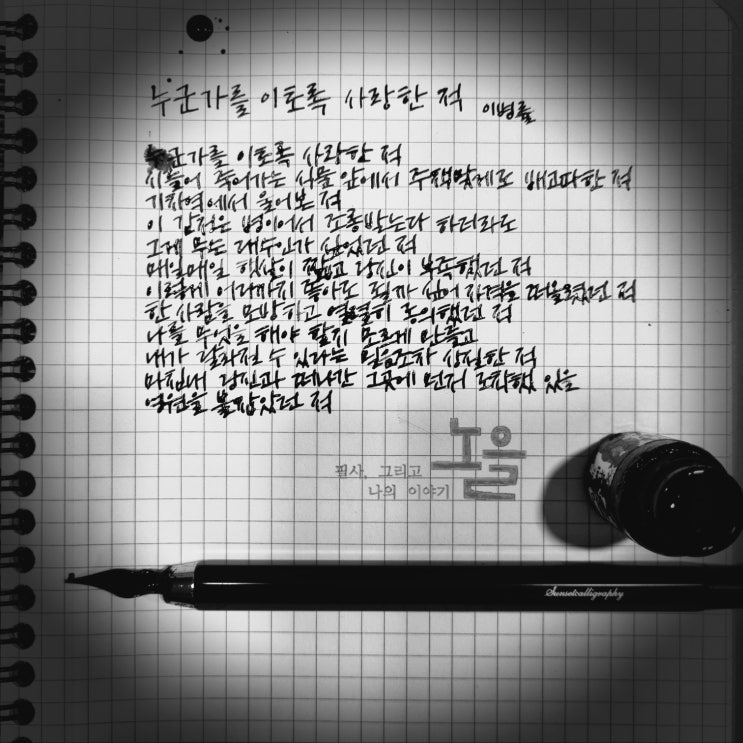 누군가를 이토록 사랑한 적 이병률
누군가를 이토록 사랑한 적
시들어 죽어가는 식물 앞에서 주책맞게도 배고파한 적
기차역에서 울어본 적
이 감정은 병이어서 조롱받는다 하더라도
그게 무슨 대수인가 싶었던 적
매일매일 햇살이 짧고 당신이 부족했던 적
이렇게 어디까지 좋아도 될까 싶어 자격을 떠올렸던 적
한 사람을 모방하고 열렬히 동의했던 적
나를 무엇을 해야 할지 모르게 만들고
내가 달라질 수 있다는 믿음조차 상실한 적
마침내 당신과 떠나간 그곳에 먼저 도착해 있을
영원을 붙잡았던 적
필사, 그리고
나의 이야기
노을
Sunsetcalligraphy